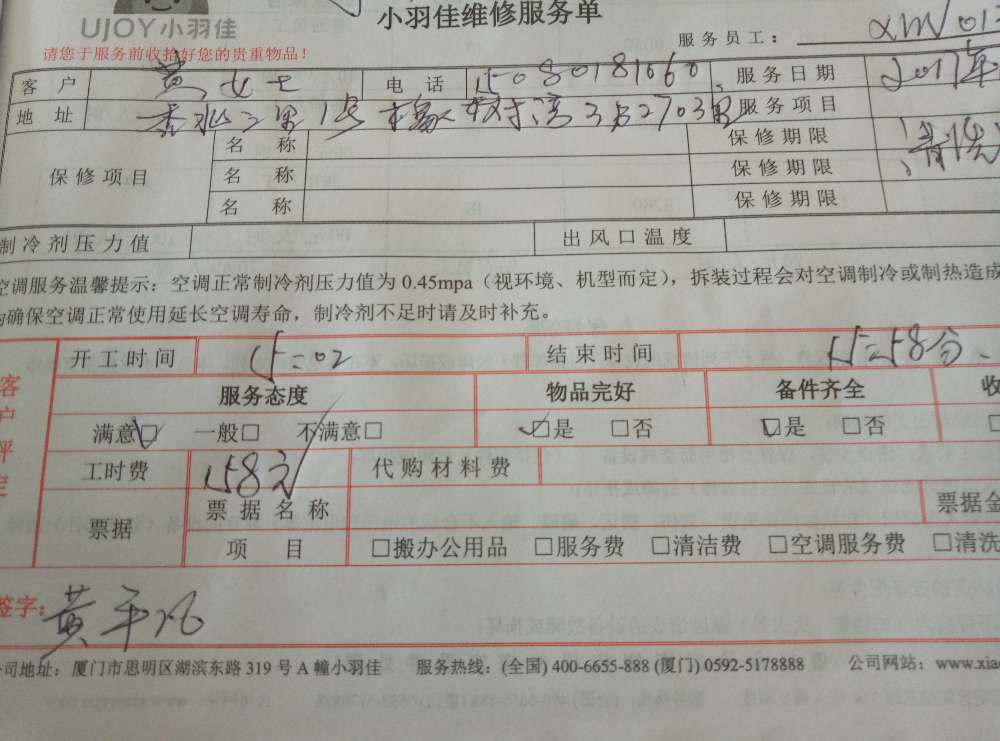 UJOY小羽佳
小羽佳维修服务单
请您于服务前收拾好您的贵重物品！
服务员工： XM 01
客 户 黄女士 电 话 15080181060 服务日期 2017年
地 址 1号 橡树湾 2703 服务项目 清洗
保修项目 名 称 保修期限
名 称 保修期限
名 称 保修期限
制冷剂压力值 出风口温度
空调服务温馨提示：空调正常制冷剂压力值为 0.45mpa（视环境、机型而定），拆装过程会对空调制冷或制热造成
确保空调正常使用延长空调寿命，制冷剂不足时请及时补充。
客户评定
开工时间 15:02 结束时间 15:58分
服务态度 物品完好 备件齐全 收
满意□ 一般□ 不满意□ □是 □否 □是 □否
工时费 158元 代购材料费
票据 票据名称 票据金
项 目 □搬办公用品 □服务费 □清洁费 □空调服务费 □清洗
签字：黄平凡
公司地址：厦门市思明区湖滨东路 319 号 A 幢小羽佳 服务热线：(全国) 400-6655-888 (厦门) 0592-5178888 公司网站：www.xia